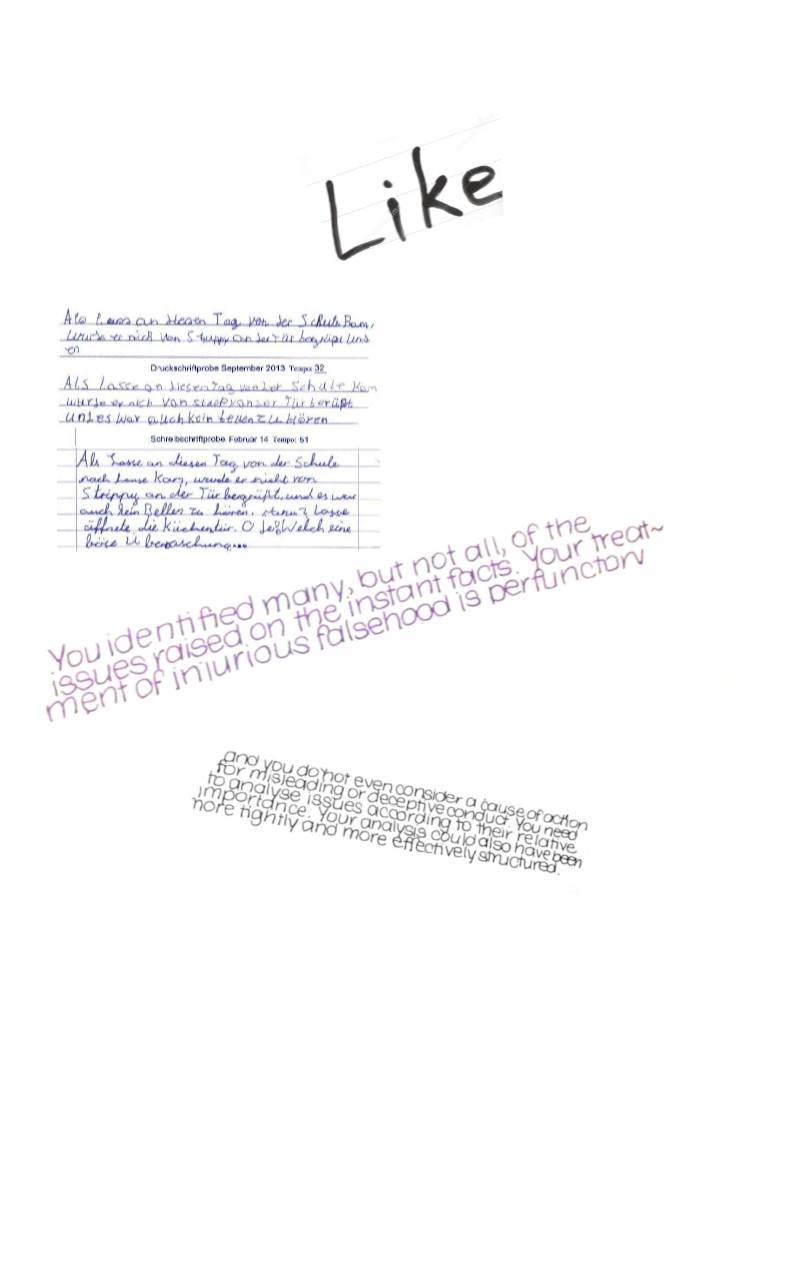 Like
Als Lasse an diesen Tag von der Schule kam,
wurde er nich von Struppy an der Tür begrüßt und
en
Druckschriftprobe September 2013 Tempo: 32
ALS Lasse an diesen Tag von der Schule kam
wurde er nich von an der Tür
und es war auch kein bellen zu hören
Schreibschriftprobe Februar 14 Tempo: 51
Als Lasse an diesen Tag von der Schule
nach Hause kam, wurde er nicht von
Struppy an der Tür begrüßt, und es war
auch kein Bellen zu hören. Lasse
öffnete die Küchentür. O je! Welch eine
böse Überraschung...
You identified many, but not all, of the
issues raised on the instant facts. Your treat~
ment of injurious falsehood is perfunctory
and you do not even consider a cause of action
for misleading or deceptive conduct. You need
to analyse issues according to their relative
importance. Your analysis could also have been
more tightly and more effectively structured.